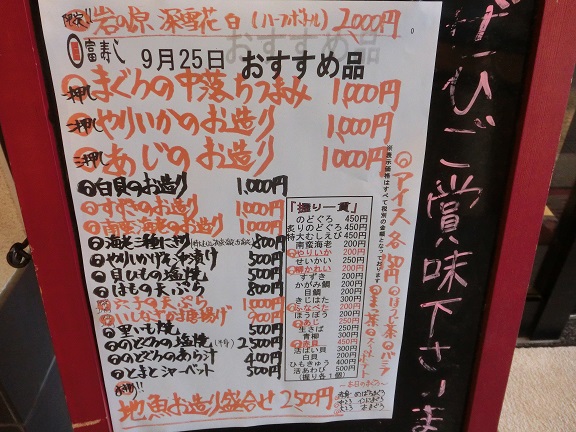 限定!! 岩の原 深雪花 白 (ハーフボトル) 2,000円
富寿し 9月25日 おすすめ品
一押し まぐろの中落ちつまみ 1,000円
二押し やりいかのお造り 1,000円
三押し あじのお造り 1,000円
白貝のお造り 1,000円
すずきのお造り 1,000円
南蛮海老のお造り 1,000円
海老三種に押 800円
やりいか 沖漬け 500円
貝ひもの塩焼 500円
はもの天ぷら 800円
穴子の天ぷら 1,000円
唐揚げ 900円
里いも焼 500円
のどぐろの塩焼 2,500円
のどぐろのあら汁 400円
とまとシャーベット 500円
地魚お造り盛合せ 2,500円
「握り一貫」
のどぐろ 450円
炙りのどぐろ 450円
特大むしえび 450円
南蛮海老 200円
やりいか 200円
せいかい 250円
柳かれい 200円
すずき 200円
かがみ鯛 200円
目鯛 200円
きじはた 300円
ふなべた 200円
ほうぼう 200円
あじ 250円
生さば 200円
青柳 300円
赤貝 450円
活ばい貝 300円
白貝 200円
ひもきゅう 400円
活あわび 500円
(握り各1個)
※表示価格はすべて税別の金額となっております
アイス 各
ほうじ茶
バニラ
まっ茶
〜本日のまぐろ〜
ぜひご賞味下さいませ